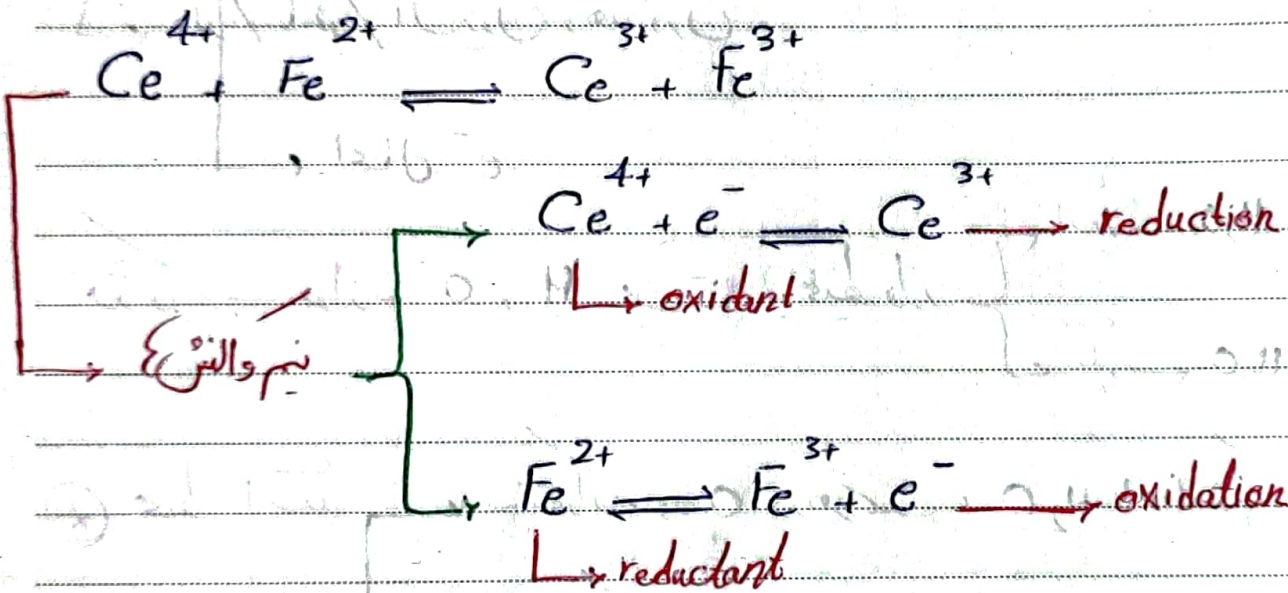 Ce⁴⁺ + Fe²⁺ ⇌ Ce³⁺ + Fe³⁺
Ce⁴⁺ + e⁻ ⇌ Ce³⁺ → reduction
↳ oxidant
نیم واکنش
Fe²⁺ ⇌ Fe³⁺ + e⁻ → oxidation
↳ reductant